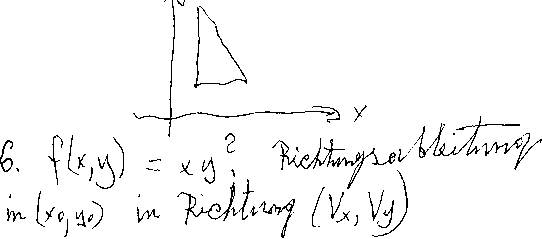 x
6. f(x,y) = xy². Richtungsableitung
in (x₀,y₀) in Richtung (Vx, Vy)